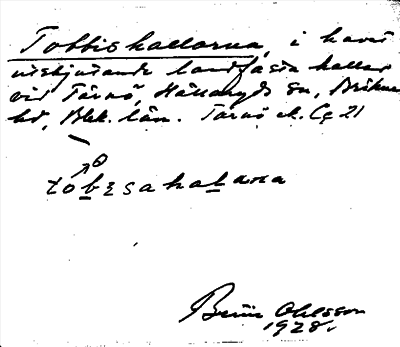 Tobbishallarna, i havet
utskjutande landfasta hallar
vid Tärnö, Hällaryds sn, Bräkne
hd, Blek. län. Tärnö ek. Cg 21
tobɛsahalana
Bror Ohlsson
1928.